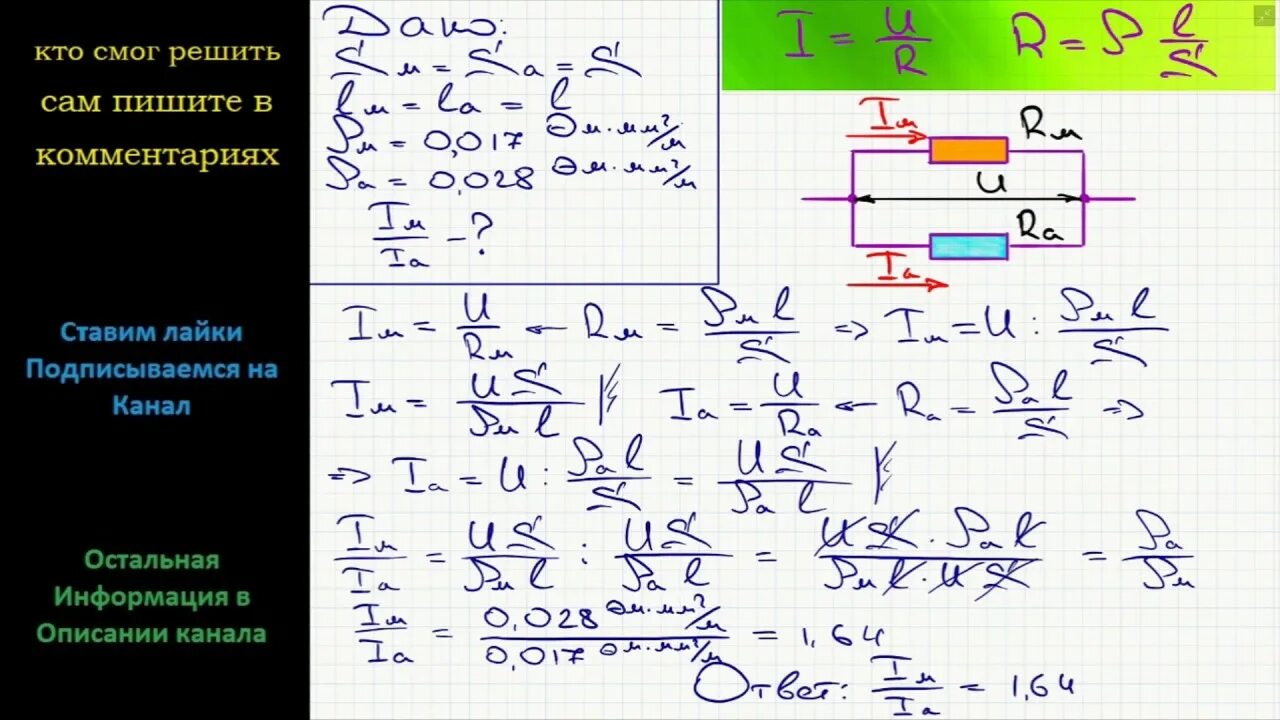 кто смог решить
сам пишите в
комментариях
Ставим лайки
Подписываемся на
Канал
Остальная
Информация в
Описании канала
Дано:
Sм = Sа = S
lм = lа = l
ρм = 0,017 Ом·мм²/м
ρа = 0,028 Ом·мм²/м
Iм/Iа - ?
I = U/R R = ρ l/S
Iм Rм
U
Rа
Iа
Iм = U/Rм ← Rм = ρм l/S => Iм = U : ρм l/S
Iм = U S/ρм l Iа = U/Rа ← Rа = ρа l/S =>
=> Iа = U : ρа l/S = U S/ρа l
Iм/Iа = U S/ρм l : U S/ρа l = U S · ρа l/ρм l · U S = ρа/ρм
Iм/Iа = 0,028 Ом·мм²/м / 0,017 Ом·мм²/м = 1,64
Ответ: Iм/Iа = 1,64